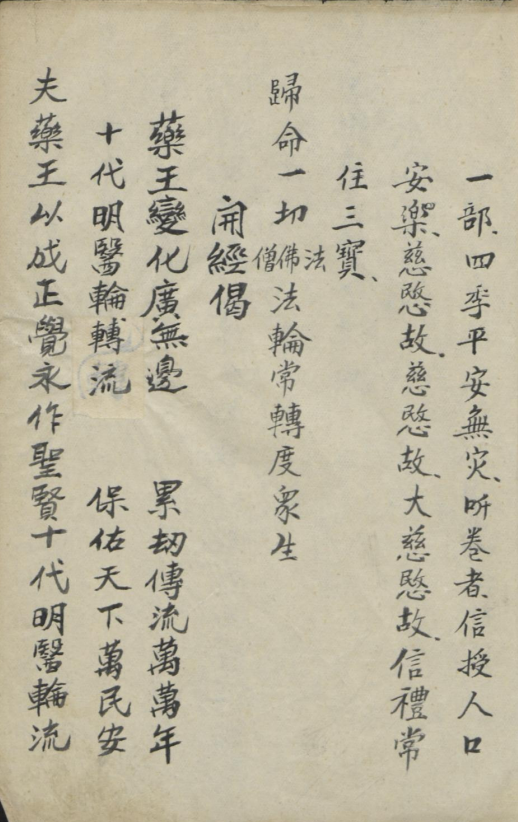 一部、四季平安無災、听卷者、信授人口
安樂、慈愍故、慈愍故、大慈愍故、信禮常
住三寶、
歸命一切佛法僧法輪常轉度衆生
開經偈
藥王變化廣無邊 累劫傳流萬萬年
十代明醫輪轉流 保佑天下萬民安
夫藥王以成正覺永作聖賢十代明醫輪流